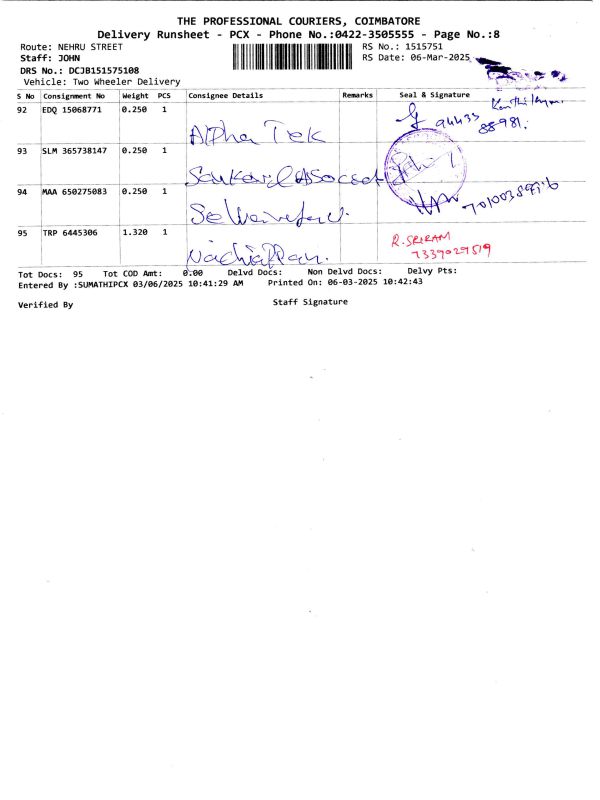 THE PROFESSIONAL COURIERS, COIMBATORE
Delivery Runsheet - PCX - Phone No.:0422-3505555 - Page No.:8
Route: NEHRU STREET RS No.: 1515751
Staff: JOHN RS Date: 06-Mar-2025
DRS No.: DCJB151575108
Vehicle: Two Wheeler Delivery
S No Consignment No Weight PCS Consignee Details Remarks Seal & Signature
92 EDQ 15068771 0.250 1 Alpha Tek 94433
88981.
93 SLM 365738147 0.250 1
94 MAA 650275083 0.250 1
95 TRP 6445306 1.320 1 Nachiappan. R. SRIRAM
7339027519
Tot Docs: 95 Tot COD Amt: 0.00 Delvd Docs: Non Delvd Docs: Delvy Pts:
Entered By :SUMATHIPCX 03/06/2025 10:41:29 AM Printed On: 06-03-2025 10:42:43
Verified By Staff Signature